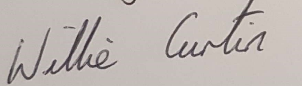 Willie Curtin